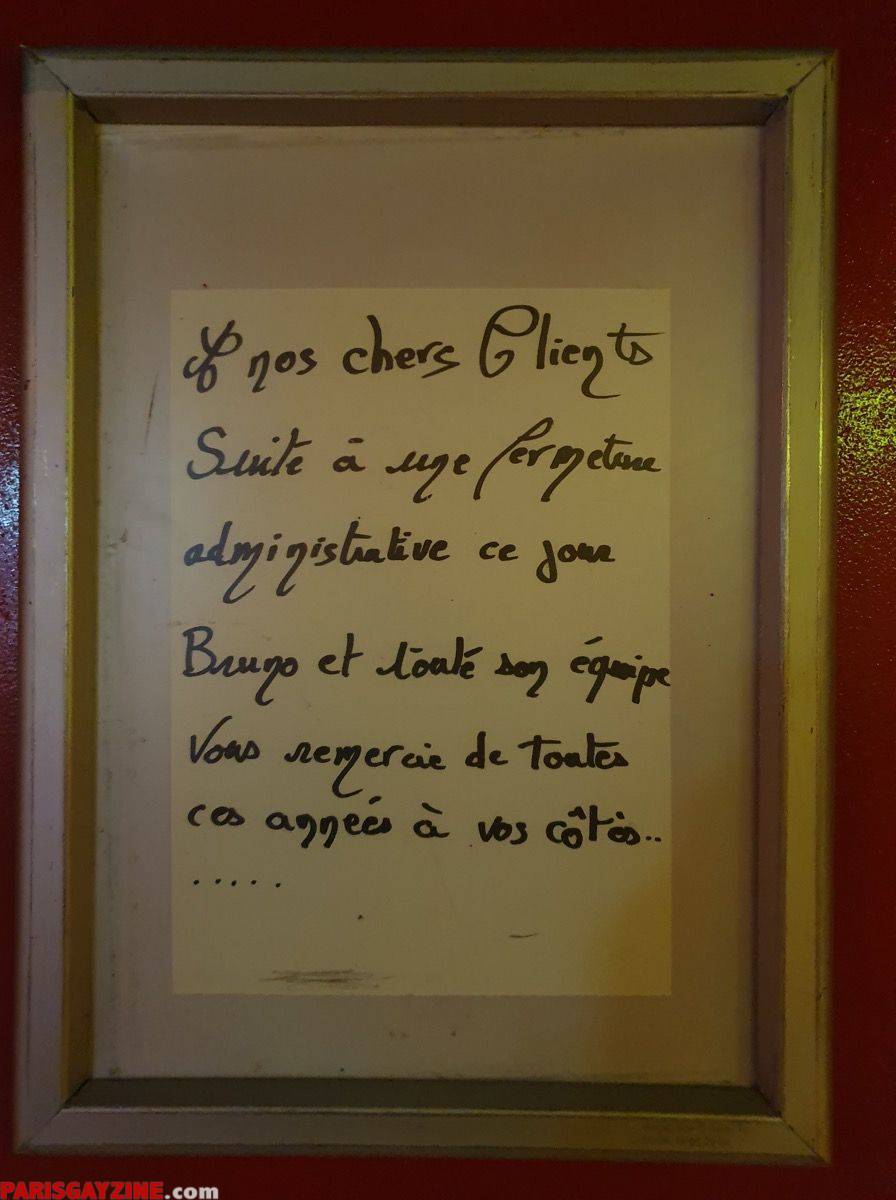 A nos chers Clients
Suite à une fermeture
administrative ce jour
Bruno et toute son équipe
Vous remercie de toutes
ces années à vos côtés..
.....
PARISGAYZINE.com